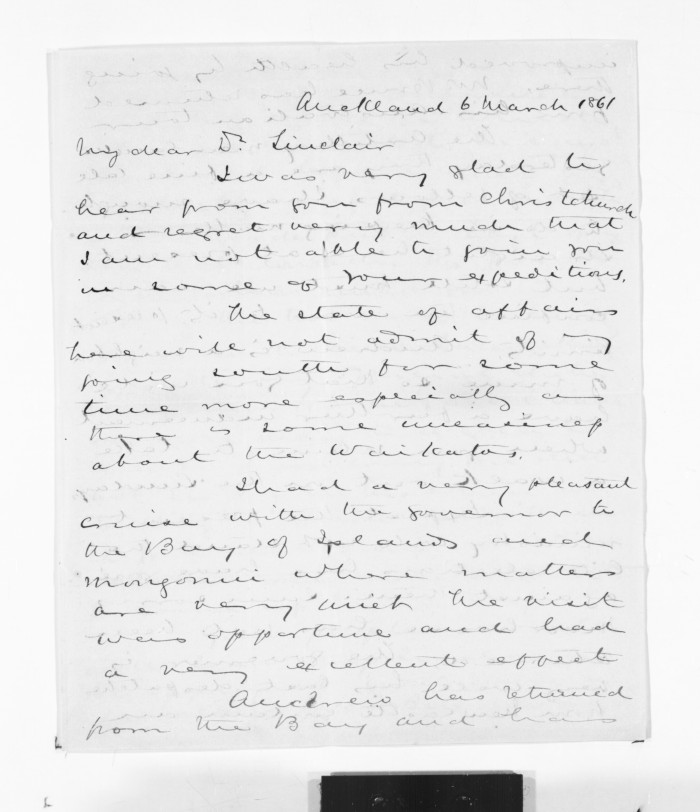 Auckland 6 March 1861
My dear Dr. Sinclair
I was very glad to
hear from you from Christchurch
and regret very much that
I am not able to join you
in some of your expeditions.
The state of affairs
here will not admit of my
going south for some
time more especially as
there is some uneasiness
about the Waikatos.
I had a very pleasant
cruise with the governor to
the Bay of Islands and
Mongonui where matters
are very quiet the visit
was opportune and had
a very excellent effect
Andrew has returned
from the Bay and has